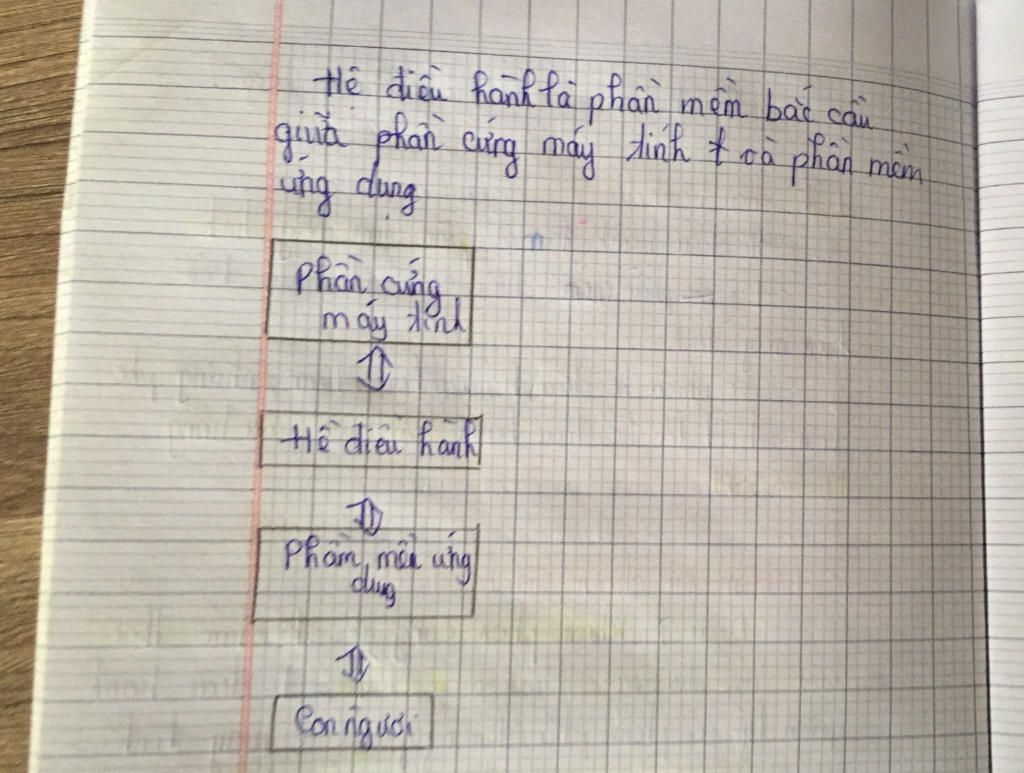 Hệ điều hành là phần mềm bắc cầu
giữa phần cứng máy tính và phần mềm
ứng dụng
Phần cứng
máy tính
Hệ điều hành
Phầm mềm ứng
dụng
Con người